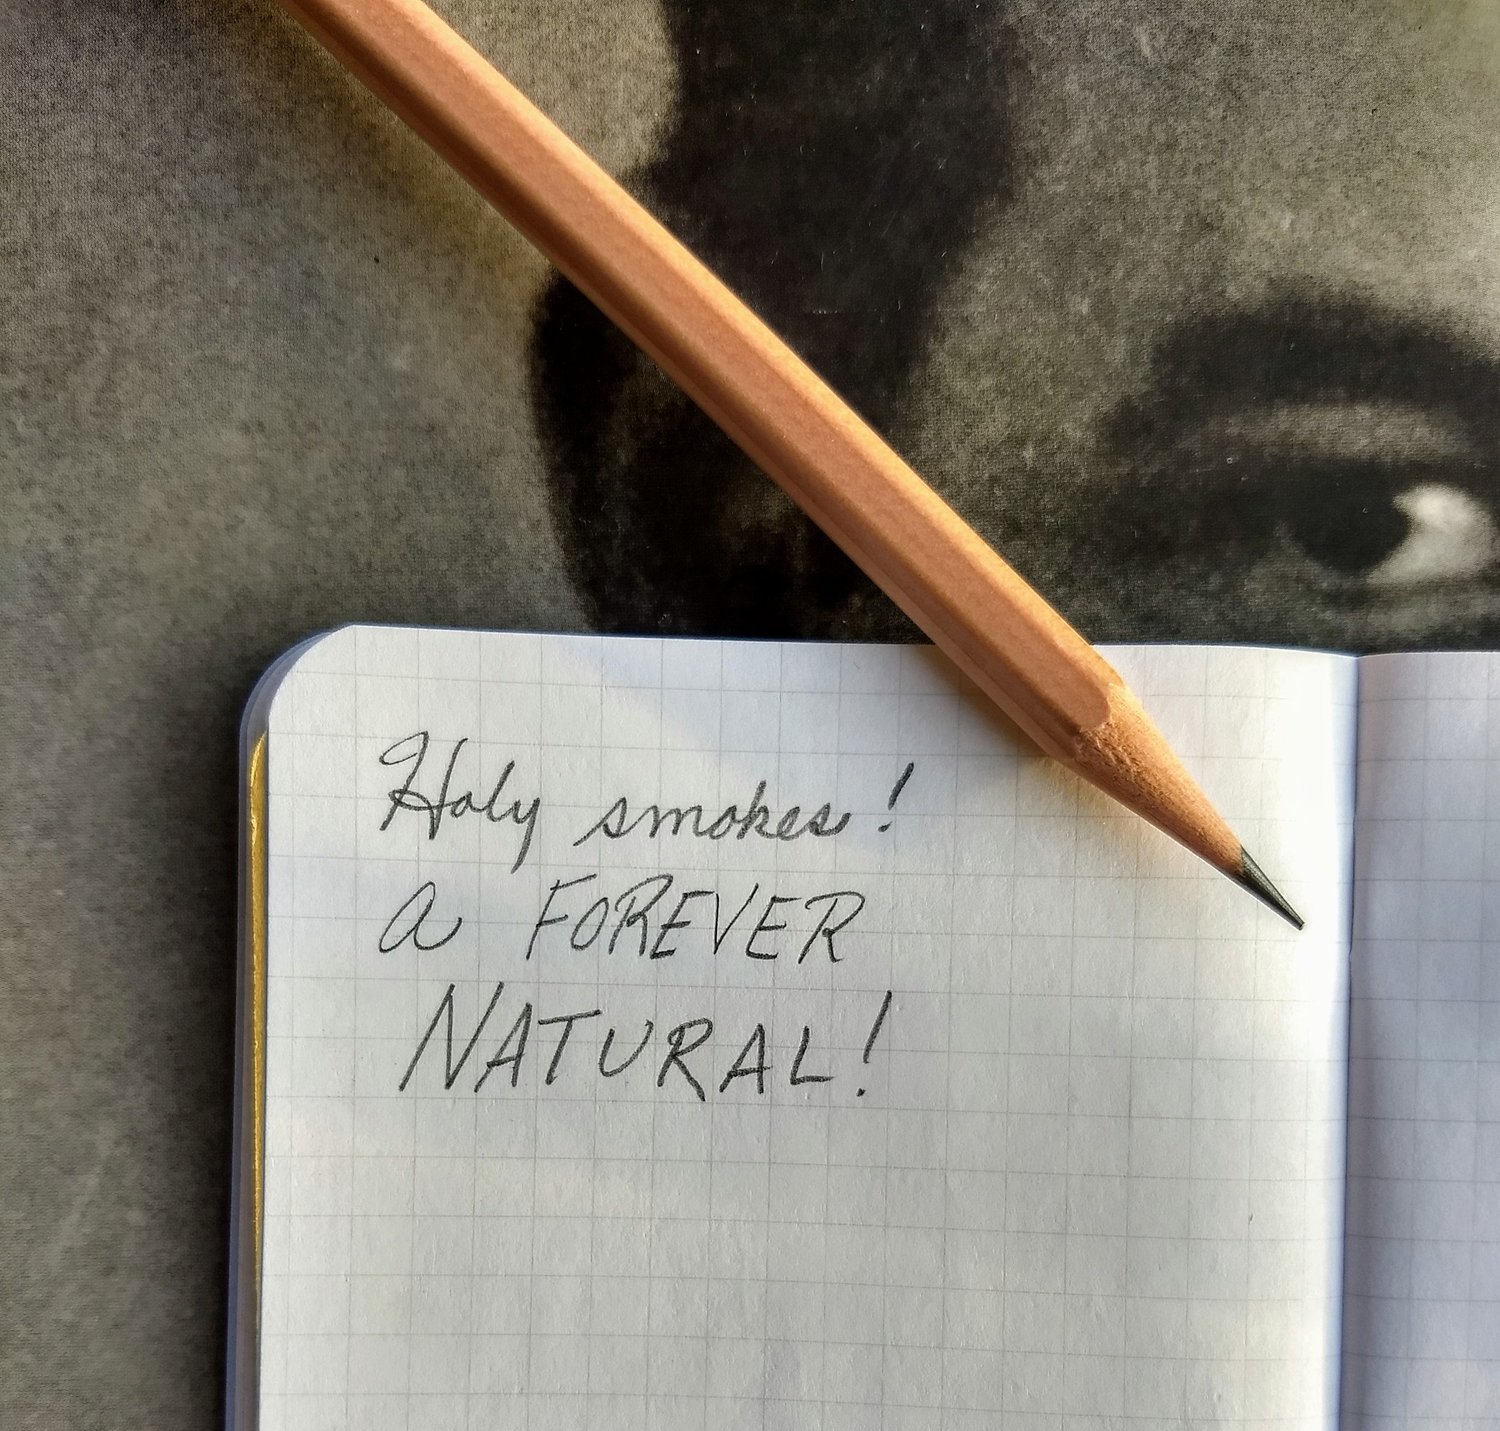 Holy smokes!
a FOREVER
NATURAL!